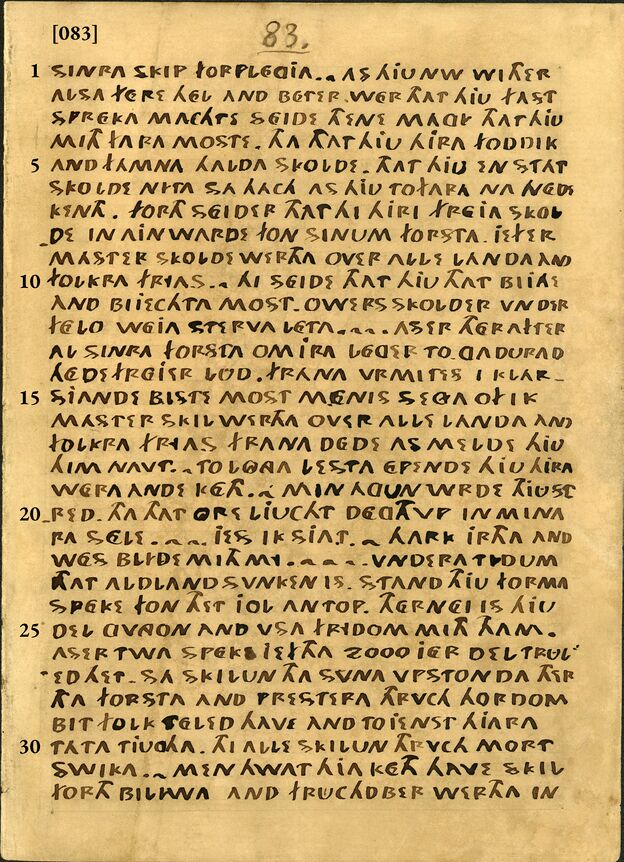 [083]
83.
1 SINRA SKIP FORPLEGJA. AS HJU NW WITHER
ALSA FERE HEL AND BETER WER THAT HJU FAST
SPREKA MACHTE SEIDE THENE MAGY THAT HJU
MITH FARA MOSTE. THA THAT HJU HIRA FODDIK
5 AND FAMNA HALDA SKOLDE. THAT HJU EN STAT
SKOLDE NITA SA HACH AS HJU TO FARA NA NEDE
KENTH. FORTH SEIDER THAT HI HIRI FREJA SKOL
DE IN AINWARDE FON SINUM FORSTA. JEF ER
MASTER SKOLDE WERTHA OVER ALLE LANDA AND
10 FOLKRA FRIAS. HI SEIDE THAT HJU THAT BIJAE
AND BIJECHTA MOST. OWERS SKOLDER VNDER
FELO WEJA STERVA LETA. AS ER THERAFTER
AL SINRA FORSTA OM IRA LEGER TO GADURAD
HEDE FREJER LUD. FRANA VRMITES I KLAR_
15 SIANDE BISTE MOST M.ENIS SEGA OF IK
MASTER SKIL WERTHA OVER ALLE LANDA AND
FOLKRA FRIAS. FRANA DEDE AS MELDE HJU
HIM NAVT. TO LONGA LESTA EPENDE HJU HIRA
WERA ANDE KETH. MIN AGUN WRDE THJUST
20 RED. THA THAT ORE LJUCHT DEGTH VP IN MINA
RA SELE. JES IK SIAT. HARK IRTHA AND
WES BLIDE MITH MI. VNDERA TIDUM
THAT ALDLAND SVNKEN IS. STAND THJU FORMA
SPEKE FON THET JOL AN TOP. THERNEI IS HJU
25 DEL GVNGON AND VSA FRIDOM MITH THAM.
AS ER TWA SPEKE JEFTHA 2000 JER DEL TRUL
ED HET. SA SKILUN THA SVNA VPSTONDA THER
THA FORSTA AND PRESTERA THRVCH HORDOM
BIT FOLK TELED HAVE AND TOJENST HJARA
30 TATA TJUGHA. THI ALLE SKILUN THRVCH MORT
SWIKA. MEN HWAT HJA KETH HAVE SKIL
FORTH BILIWA AND FRUCHDBER WERTHA IN